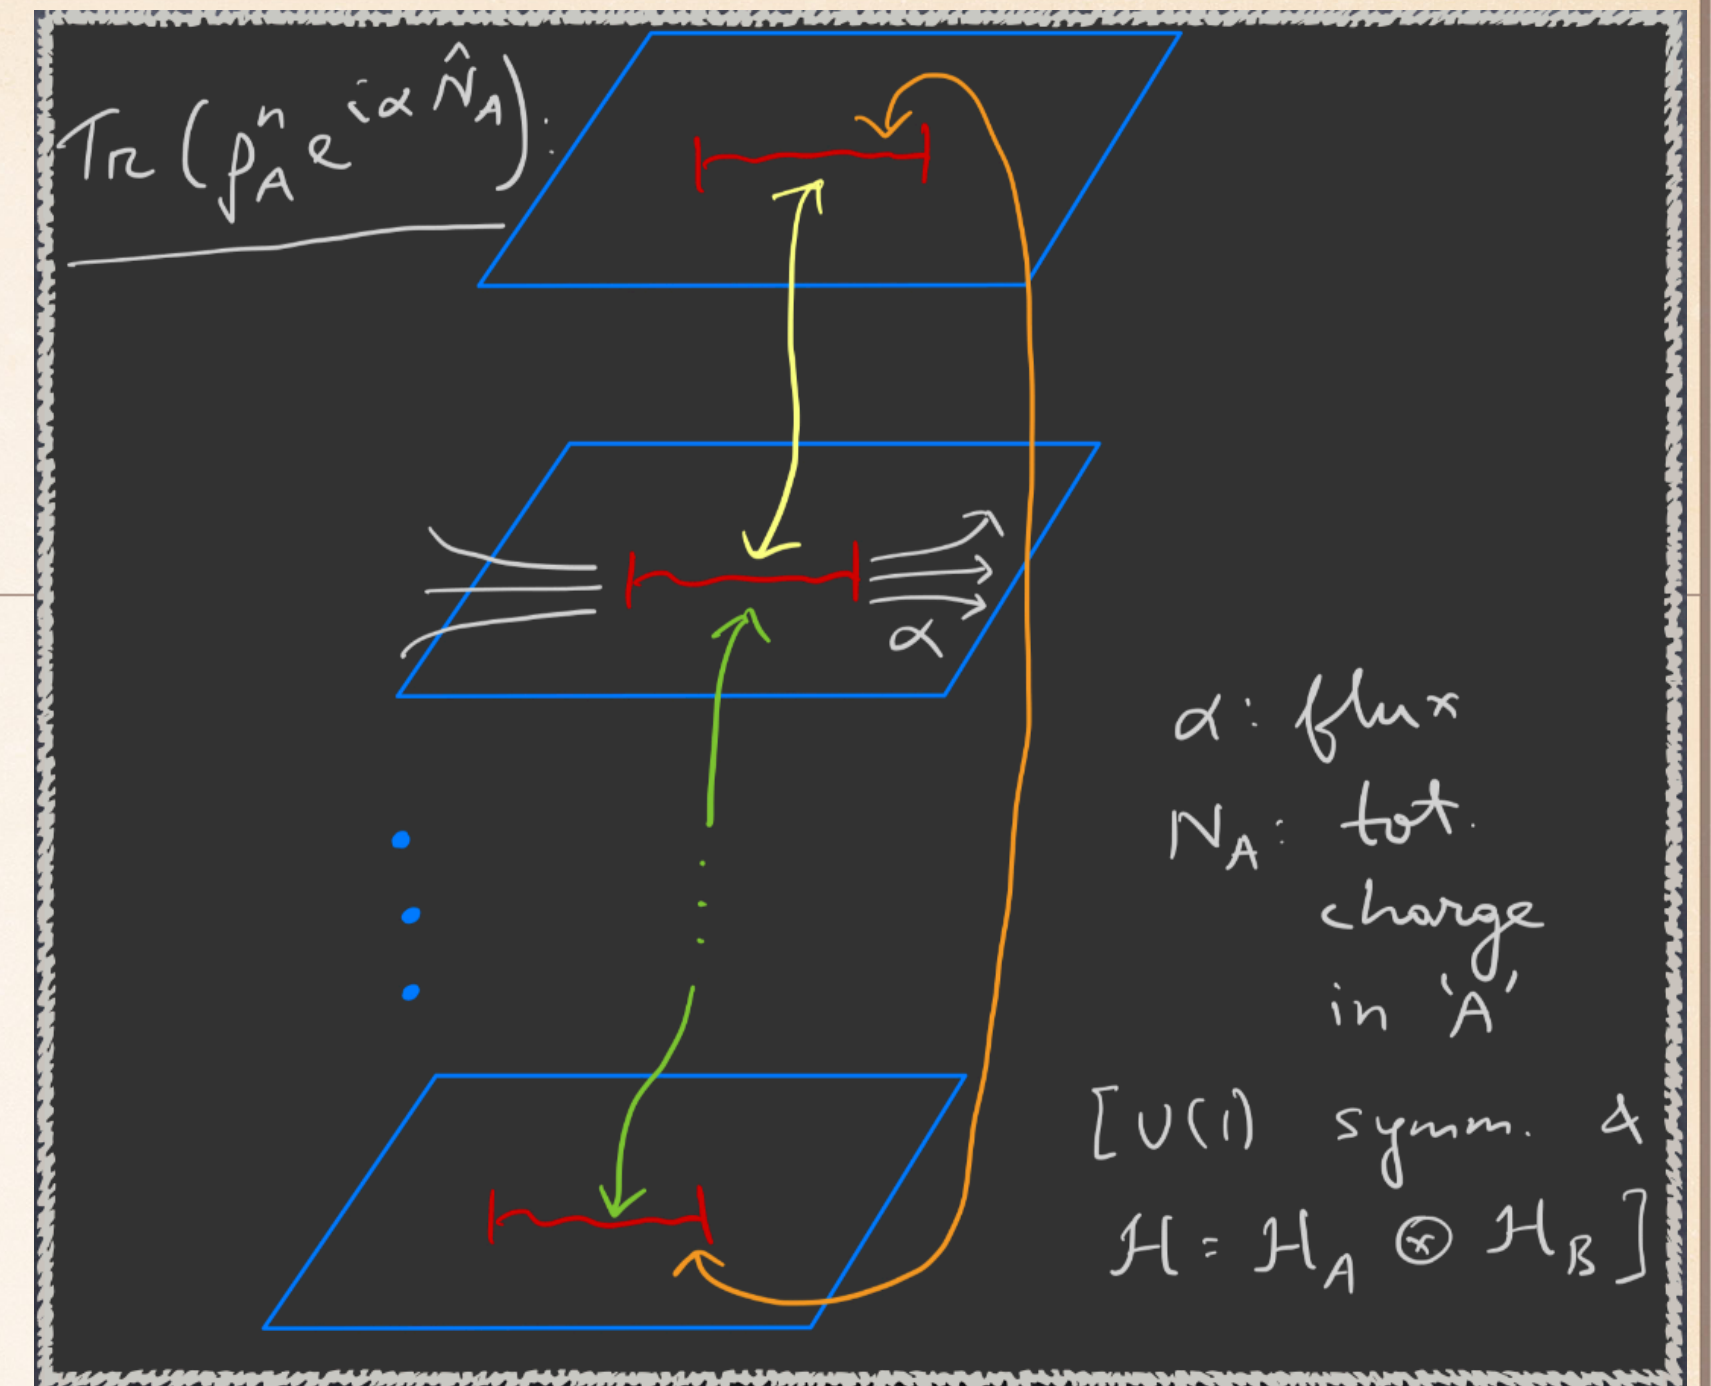 Tr (ρ_A^n e^{iα N̂_A}):
α
α: flux
N_A: tot.
charge
in 'A'
[U(1) symm. &
H = H_A ⊗ H_B]